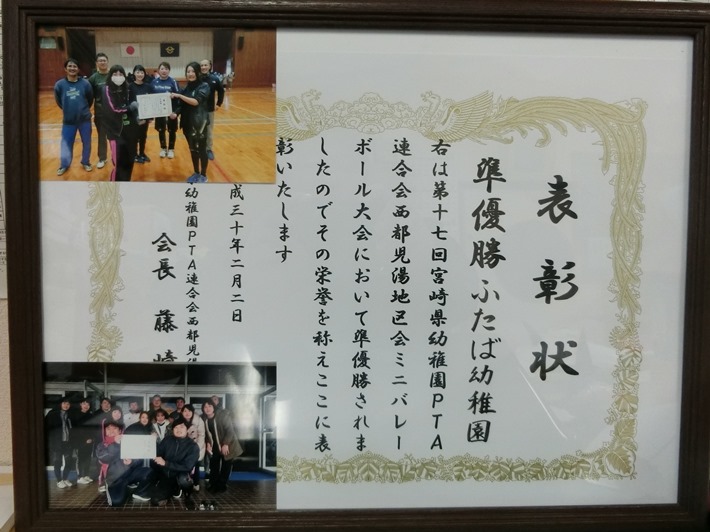 表彰状
準優勝ふたば幼稚園
右は第十七回宮崎県幼稚園PTA
連合会西都児湯地区会ミニバレー
ボール大会において準優勝されま
したのでその栄誉を称えここに表
彰いたします
成三十年二月二日
幼稚園PTA連合会西都児湯
会長 藤崎